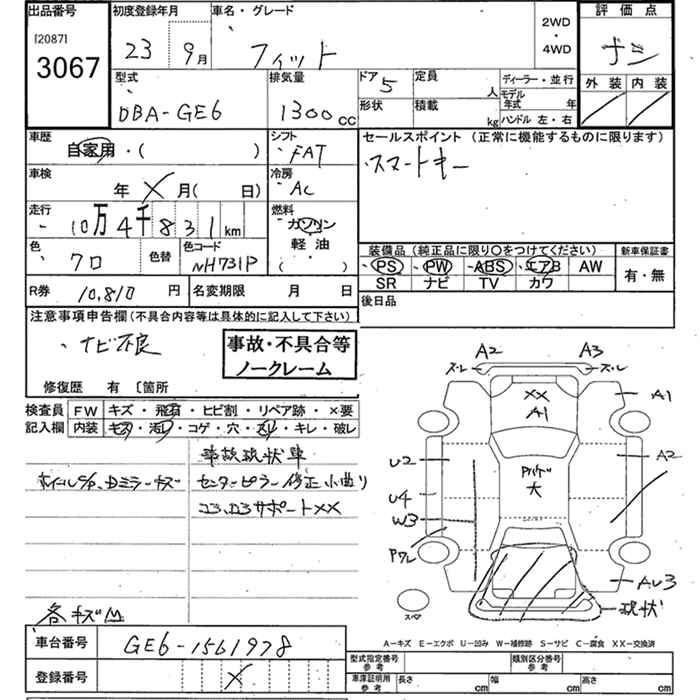 出品番号 初度登録年月 車名・グレード 2WD・4WD 評価点
[20871]
3067 23 9月 フィット
型式 排気量 ドア 5 定員 人 ディーラー・並行 外装 内装
DBA-GE6 1300cc 形状 積載 kg モデル年式 年
ハンドル 左・右
車歴 シフト セールスポイント (正常に機能するものに限ります)
自家用・( ) FAT スマートキー
車検 冷房
年 X 月( 日) AC
走行 燃料
10万4千831km ガソリン
軽油
・( )
色 色替 色コード 装備品 (純正品に限り〇をつけてください) 新車保証書
クロ NH731P PS PW ABS エアB AW 有・無
SR ナビ TV カワ
R券 10,810円 名変期限 月 日 後日品
注意事項申告欄(不具合内容等は具体的に記入して下さい)
・ナビ不良
事故・不具合等
ノークレーム
修復歴 有 〔箇所
検査員 FW キズ・飛石・ヒビ割・リペア跡・×要
記入欄 内装 キズ・汚れ・コゲ・穴・スレ・キレ・破レ
事故現状車
センターピラー修正小曲り
コアサポートXX
A2 A3
ズレ ズレ
XX
A1
A1
U2 A2
大
U4
W3
AU3
現状
スペア
各キズ凹
A-キズ E-エクボ U-凹み W-補修跡 S-サビ C-腐食 XX-交換済
車台番号 GE6-1561978
登録番号 X
型式指定番号 参考 類別区分番号 参考
車庫証明用 参考 長さ cm 幅 cm 高さ cm